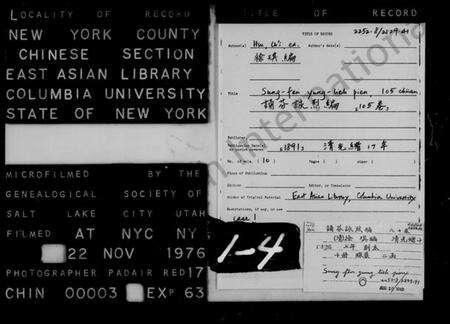 LOCALITY OF RECORD
NEW YORK COUNTY
CHINESE SECTION
EAST ASIAN LIBRARY
COLUMBIA UNIVERSITY
STATE OF NEW YORK
MICROFILMED BY THE
GENEALOGICAL SOCIETY OF
SALT LAKE CITY UTAH
FILMED AT NYC NY
22 NOV 1976
PHOTOGRAPHER PADAIR RED 17
CHIN 00003 EXP 63
TITLE OF RECORD
TITLE OF RECORD
Author(s) Hsu, Ch'i ed. Author's date(s)
徐琪編
Title Sung-fen yung-lieh pien, 105 chüan
誦芬詠烈編, 105卷
Publisher
Publication Date(s) 1891, 清光緒17年
No. of vols. 10 Pages
Place of Publication
Edition Editor, or Translator
Holder of Original Material East Asian Library, Columbia University
case 1
1-4
誦芬詠烈編
Sung fen yung lieh pien